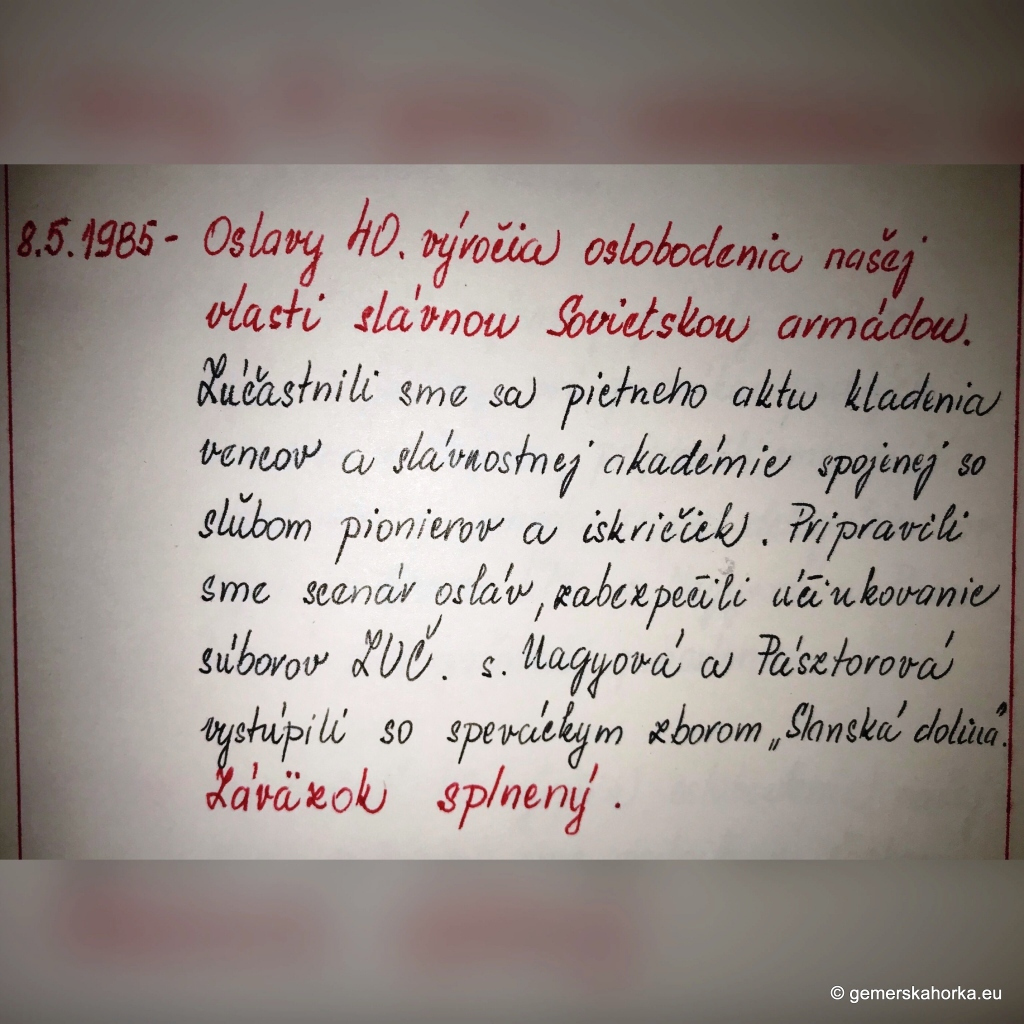 8.5.1985 - Oslavy 40. výročia oslobodenia našej
vlasti slávnou Sovietskou armádou.
Zúčastnili sme sa pietneho aktu kladenia
vencov a slávnostnej akadémie spojenej so
sľubom pionierov a iskričiek. Pripravili
sme scenár osláv, zabezpečili účinkovanie
súborov ZUČ. s. Nagyová a Pásztorová
vystúpili so speváckym zborom „Slanská dolina".
Záväzok splnený.
© gemerskahorka.eu